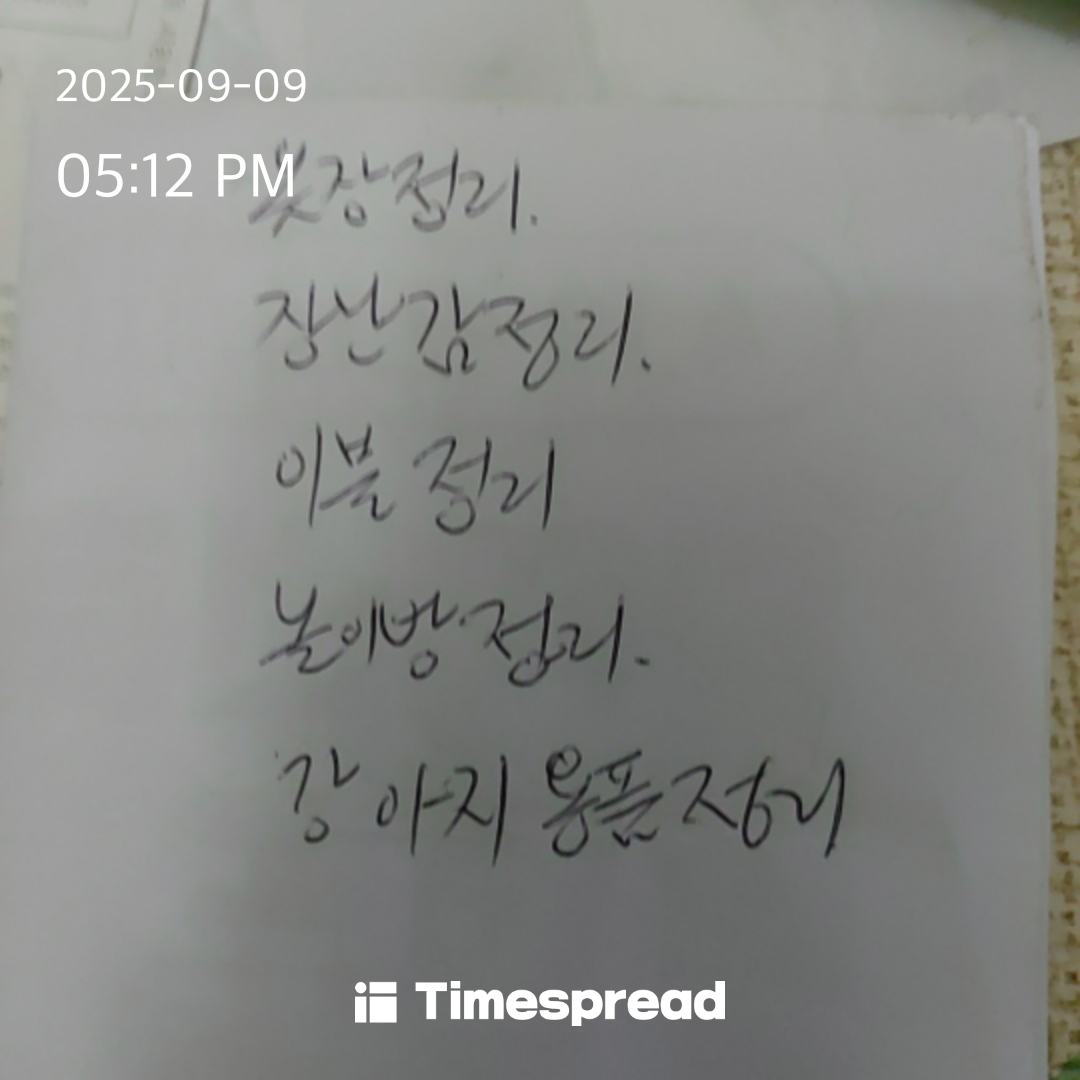 2025-09-09
05:12 PM
옷장정리.
장난감정리.
이불 정리
놀이방정리.
강아지 용품정리
Timespread